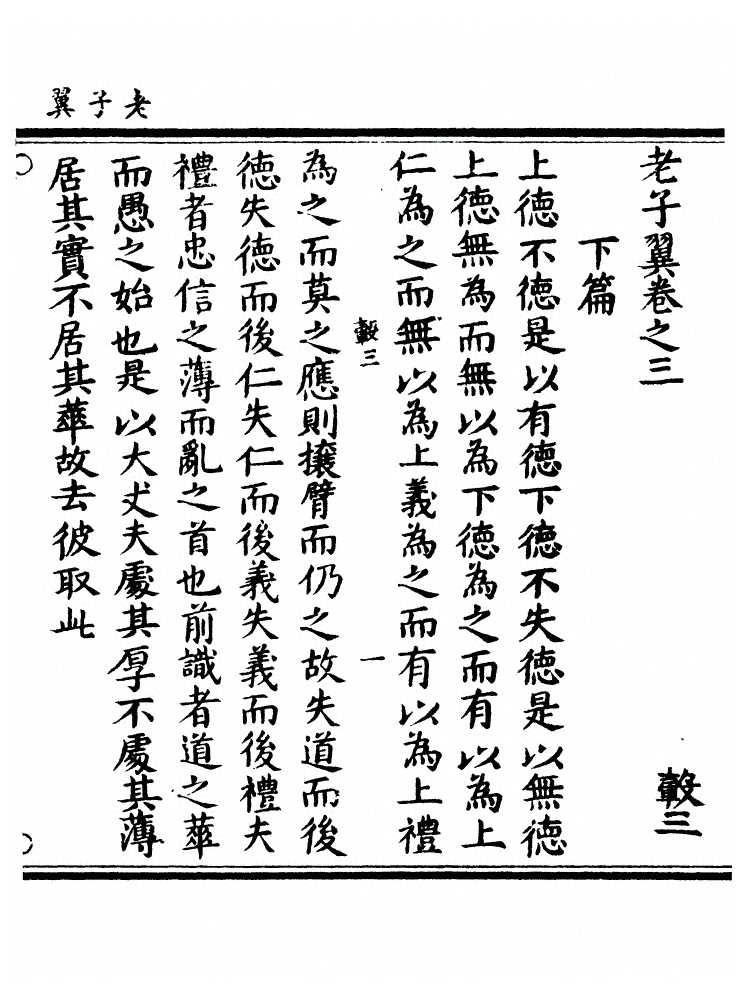 老子翼
老子翼卷之三
轂三
下篇
上德不德是以有德下德不失德是以無德
上德無為而無以為下德為之而有以為上
仁為之而無以為上義為之而有以為上禮
轂三
一
為之而莫之應則攘臂而仍之故失道而後
德失德而後仁失仁而後義失義而後禮夫
禮者忠信之薄而亂之首也前識者道之華
而愚之始也是以大丈夫處其厚不處其薄
居其實不居其華故去彼取此